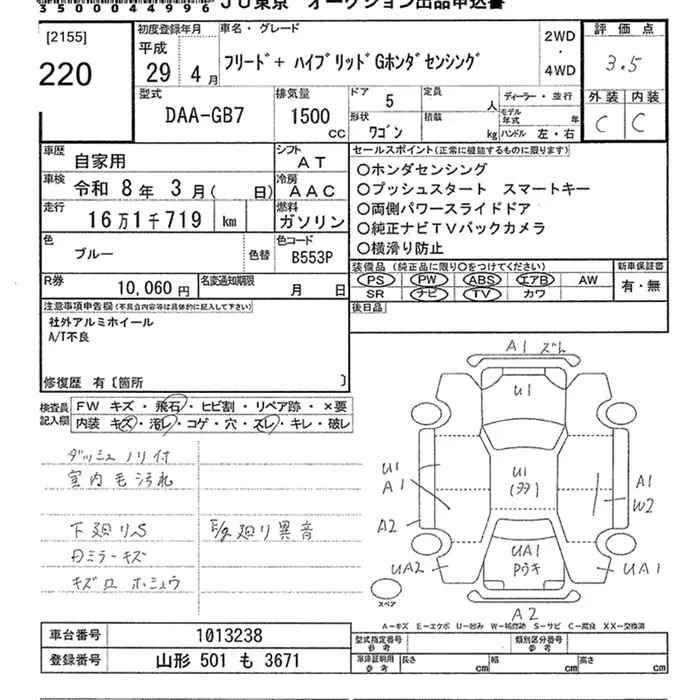 35000044996 JU東京 オークション出品申込書
[2155]
220
初度登録年月
平成
29年 4月
車名・グレード
フリード+ ハイブリッドGホンダセンシング
2WD
・
4WD
評価点
3.5
外装 内装
C C
型式
DAA-GB7
排気量
1500
CC
ドア 5
形状 ワゴン
定員 人
積載 kg
ディーラー・並行
モデル年式 年
ハンドル 左・右
車歴 自家用
シフト AT
車検 令和 8年 3月( 日)
冷房 AAC
走行 16万1千719 km
燃料 ガソリン
色 ブルー 色替
色コード B553P
R券 10,060円
名変通知期限 月 日
セールスポイント(正常に機能するものに限ります)
〇ホンダセンシング
〇プッシュスタート スマートキー
〇両側パワースライドドア
〇純正ナビTVバックカメラ
〇横滑り防止
装備品(純正品に限り〇をつけてください)
PS PW ABS エアB AW
SR ナビ TV カワ
新車保証書
有・無
後日品
注意事項申告欄(不具合内容等は具体的に記入して下さい)
社外アルミホイール
A/T不良
修復歴 有〔箇所 〕
検査員記入欄
FW キズ・飛石・ヒビ割・リペア跡・×要
内装 キズ・汚レ・コゲ・穴・スレ・キレ・破レ
ダッシュノリ付
室内毛汚れ
下廻りS
E/g廻り異音
ミラーキズ
キズロホシュウ
A1 ズレ
U1
U1
A1
U1
A1
W2
A2
UA2
UA1
Pウキ
UA1
A2
スペア
A-キズ E-エクボ U-凹み W-補修跡 S-サビ C-腐食 XX-交換済
車台番号 1013238
登録番号 山形 501 も 3671
型式指定番号 参考
類別区分番号 参考
車庫証明用 参考
長さ cm
幅 cm
高さ cm